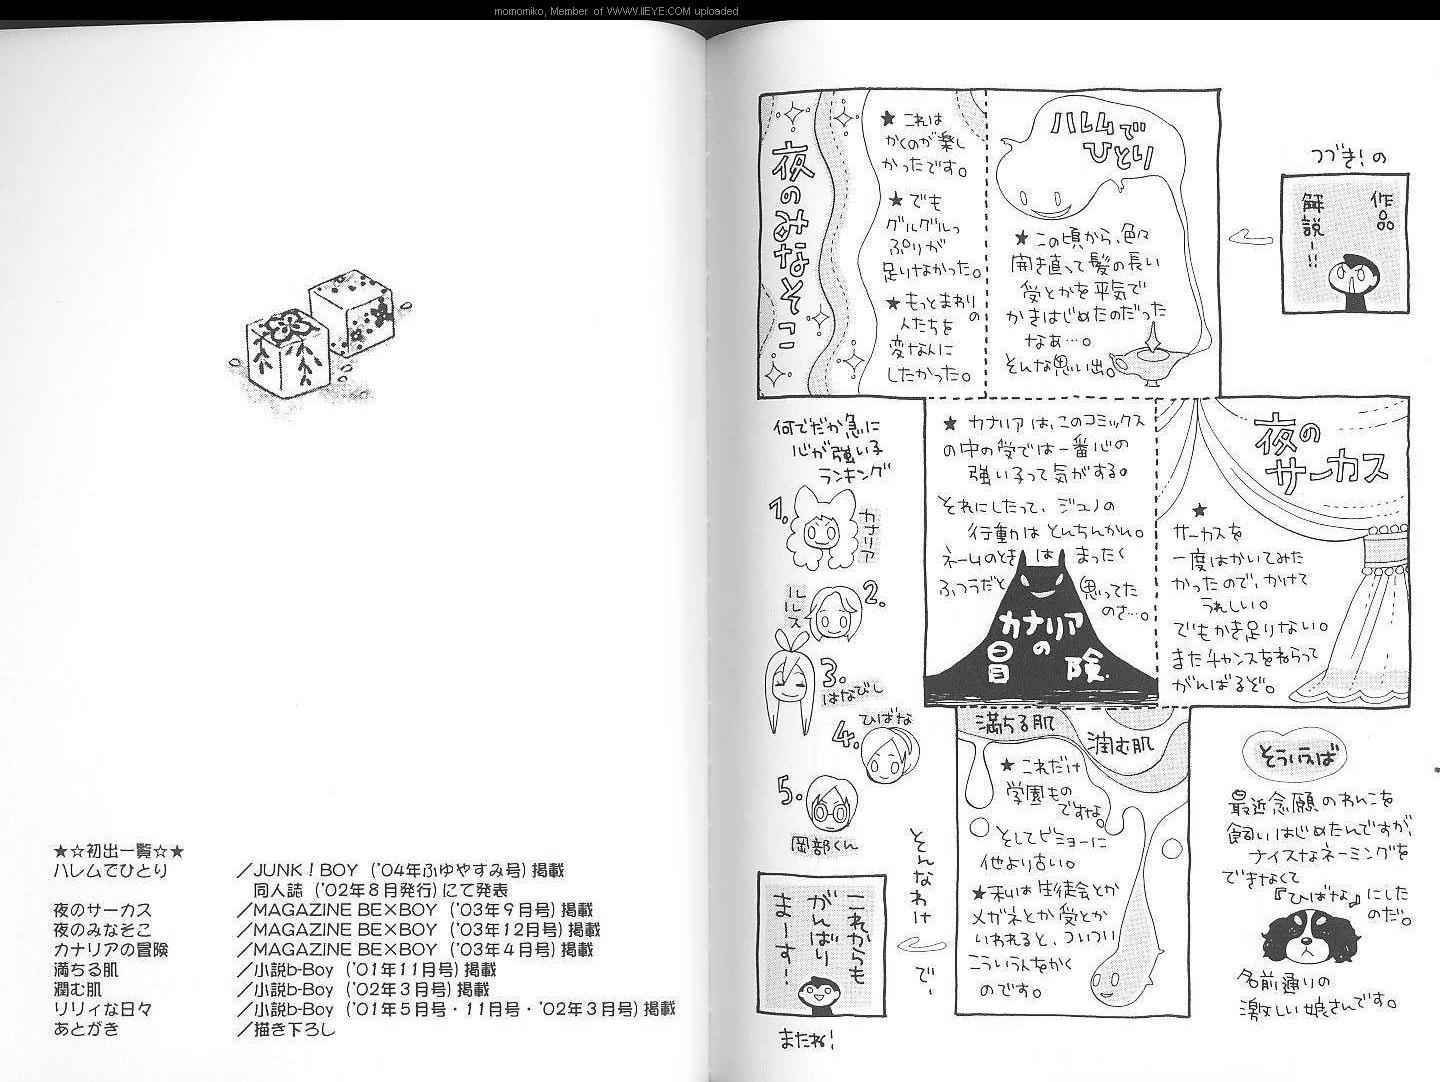 momomiko, Member of WWW.IIEYE.COM uploaded
つづき!の
作品
解説ー!!
ハレムで
ひとり
★この頃から、色々
開き直って髪の長い
受とかを平気で
かきはじめたのだった
なぁ…。
そんな思い出。
夜のみなそこ
★これは
かくのが楽し
かったです。
★でも
グルグルっ
ぷりが
足りなかった。
★もっとまわりの
人たちを
変な人に
したかった。
夜の
サーカス
★
サーカスを
一度はかいてみた
かったので、かけて
うれしい。
でもかき足りない。
またチャンスをねらって
がんばるぞ。
★カナリアは、このコミックス
の中の受では一番心の
強い子って気がする。
それにしたって、ジュノの
行動はとんちんかん。
ネームのときはまったく
ふつうだと思ってた
のさ…。
カナリア
の
冒険
何でだか急に
心が強い子
ランキング
1.
カナリア
2.
ルルス
3.
はなびし
4.
ひばな
5.
岡部くん
満ちる肌
潤む肌
★これだけ
学園もの
ですな。
そしてビミョーに
他より古い。
★私は生徒会とか
メガネとか受とか
いわれると、ついつい
こういう人をかく
のです。
そういえば
最近念願のわんこを
飼いはじめたんですが、
ナイスなネーミングを
できなくて
『ひばな』にした
のだ。
名前通りの
激しい娘さんです。
とんなわけ
で、
これからも
がんばり
まーす!
またね!
★☆初出一覧☆★
ハレムでひとり／JUNK！BOY（'04年ふゆやすみ号）掲載
同人誌（'02年８月発行）にて発表
夜のサーカス／MAGAZINE BE×BOY（'03年９月号）掲載
夜のみなそこ／MAGAZINE BE×BOY（'03年12月号）掲載
カナリアの冒険／MAGAZINE BE×BOY（'03年４月号）掲載
満ちる肌／小説b-Boy（'01年11月号）掲載
潤む肌／小説b-Boy（'02年３月号）掲載
リリィな日々／小説b-Boy（'01年５月号・11月号・'02年３月号）掲載
あとがき／描き下ろし